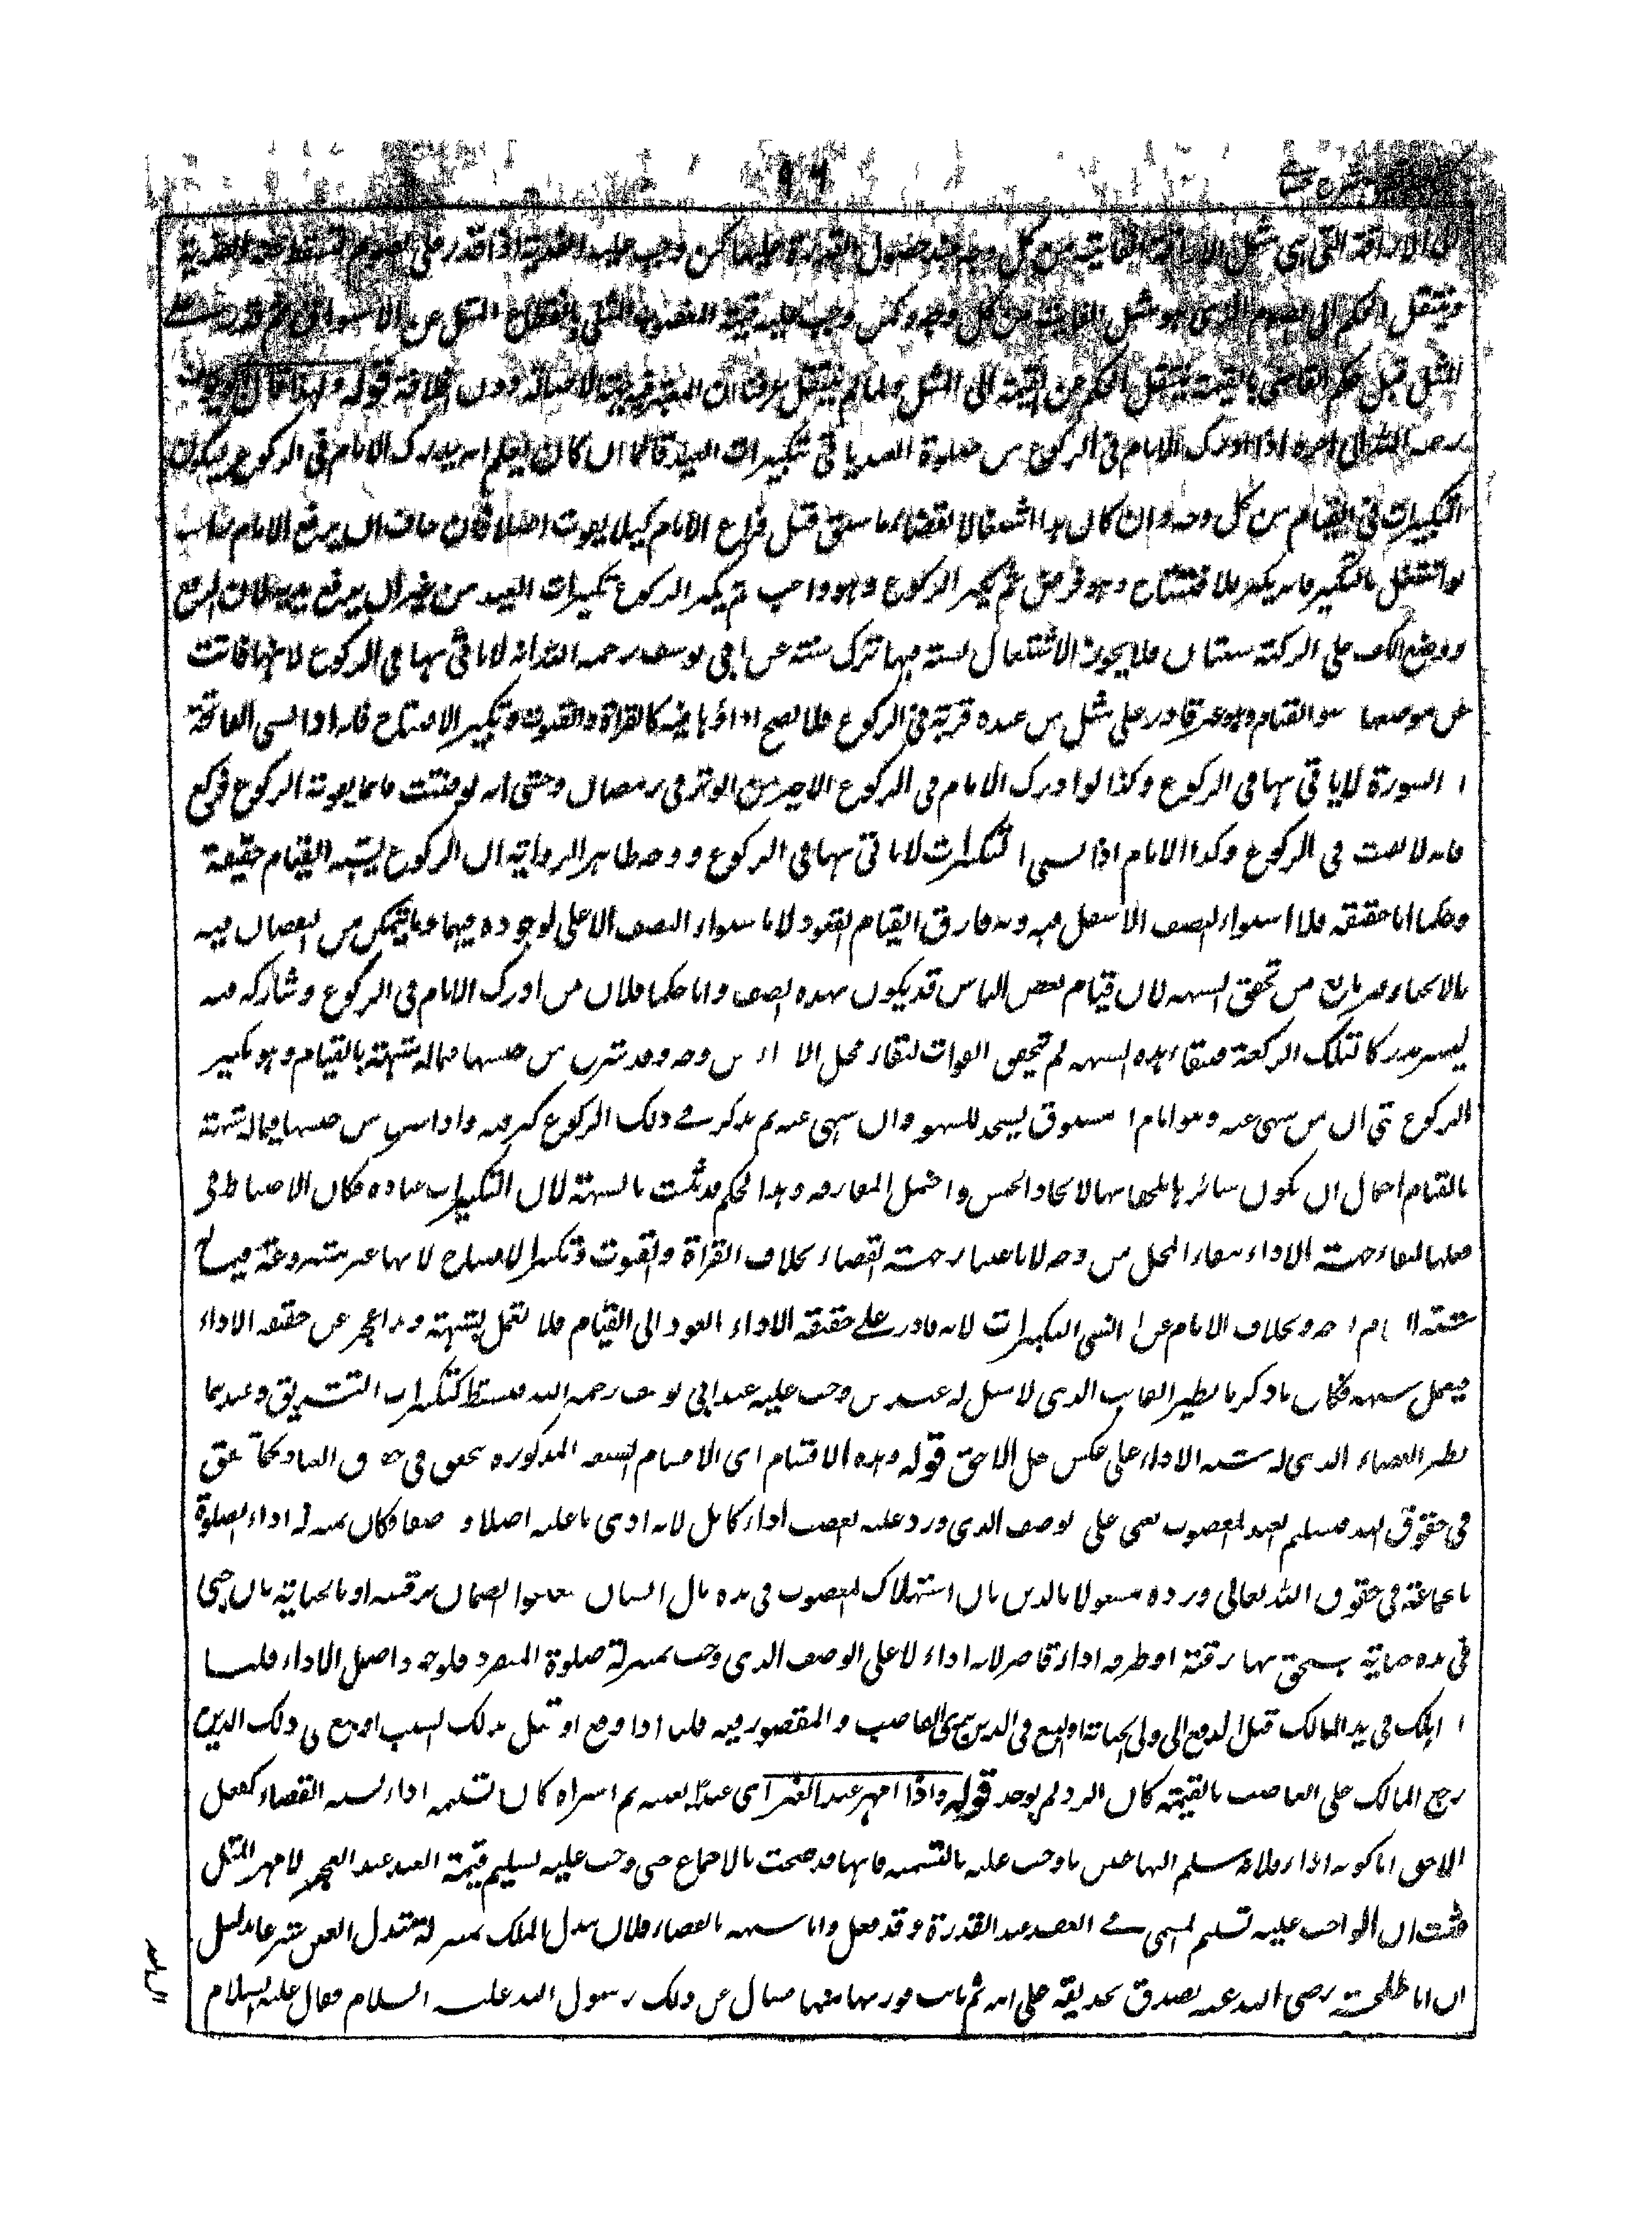 الى الاراقة التى هى مثل الاراقة الفايتة من كل وجه عند حصول القدرة عليها كمن وجب عليه الفدية اذا قدر على الصوم
وينتقل الحكم الى الصوم الذى هو مثل الفايت من كل وجه وكمن وجب عليه قيمة المغصوب المثلى بانقطاع المثل عن الاسواق ثم قدر على
المثل قبل حكم القاضى بالقيمة ينتقل الحكم من القيمة الى المثل ولما لم ينتقل عرفنا ان المعتبر فيه الاصالة دون الخلافة قوله ولهذا قال ابو يوسف
رحمه الله فى من اذا ادرك الامام فى الركوع من صلوة العيد ياتى بتكبيرات العيد قائما ان كان يعلم انه يدرك الامام فى الركوع ليكون
التكبيرات فى القيام من كل وجه وان كان هذا اشتغالا لقضاء ما سبق قبل فراغ الامام كيلا يفوت اصلا فان خاف ان يرفع الامام راسه
لو اشتغل بالتكبير فانه يكبر للافتتاح وهو فرض ثم يكبر الركوع وهو واجب ثم يكبر الركوع تكبيرات العيد من غير ان يرفع يديه لان الرفع
ووضع الكف على الركبة سنتان فلا يجوز الاشتغال بسنة فيها ترك سنة عن ابى يوسف رحمه الله انه لا ياتى بها فى الركوع لانها فاتت
عن موضعها هو القيام وهو غير قادر على مثل من عنده قربة فى الركوع فلا يصح اداؤها فيه كالقراءة والقنوت وتكبير الافتتاح فانه اذا نسى الفاتحة
السورة لا ياتى بها فى الركوع وكذا لو ادرك الامام فى الركوع الاخير من الوتر فى رمضان وخشى انه لو قنت قائما يفوته الركوع فركع
فانه لا يقنت فى الركوع وكذا الامام اذا نسى التكبيرات لا ياتى بها فى الركوع ووجه ظاهر الرواية ان الركوع يشبه القيام حقيقة
وحكما اما حقيقة فلاستواء النصف الاسفل فيه وبه فارق القيام القعود لا باستواء النصف الاعلى لوجوده فيهما وما يتمكن من النقصان فيه
بالانحناء غير مانع من تحقق الشبهة لان قيام بعض الناس قد يكون بهذه الصفة واما حكما فلان من ادرك الامام فى الركوع وشاركه فيه
يصير مدركا لتلك الركعة فبقاء هذه الشبهة لم يتحقق الفوات لبقاء محل الاداء من وجه وقد شرع من جنسها فيما له شبهة بالقيام وهو تكبير
الركوع حتى ان من سهى عنه وهو امام او مسبوق يسجد للسهو وان سهى عنه ثم تذكر فى ذلك الركوع كبر فيه واذا شرع من جنسها فيما له شبهة
بالقيام احتمل ان يكون سائرها ملحقا بها لاتحاد الجنس واحتمل المفارقة وهذا الحكم قد يثبت بالشبهة لان التكبيرات عبادة فكان الاحتياط فى
فعلها لبقاء جهة الاداء ببقاء المحل من وجه لا باعتبار جهة القضاء بخلاف القراءة والقنوت وتكبير الافتتاح لانها غير مشروعة فيما له
شبهة القيام بوجه وبخلاف الامام اذا نسى التكبيرات لانه قادر على حقيقة الاداء بالعود الى القيام فلا يعمل بشبهة وهذا عجز عن حقيقة الاداء
فيعمل بشبهه فكان ما ذكرنا نظير الفايت الذى لا مثل له عند من وجب عليه عند ابى يوسف رحمه الله فيسقط كتكبيرات التشريق وعندهما
نظير القضاء الذى له شبه الاداء على عكس فعل اللاحق قوله وهذه الاقسام اى الاقسام السبعة المذكورة تتحقق فى حقوق العباد كما تتحقق
فى حقوق الله فتسليم العبد المغصوب يعنى على الوصف الذى ورد عليه الغصب اداء كامل لانه ادى ما عليه اصلا ووصفا فكان بمنزلة اداء الصلوة
بالجماعة فى حقوق الله تعالى ورده مشغولا بالدين بان استهلاك المغصوب فى يده مال انسان تعلق الضمان برقبته او بالجناية بان جنى
فى يده جناية يستحق بها رقبته او طرفه اداء قاصر لانه اداء لا على الوصف الذى وجب بمنزلة صلوة المنفرد فلوجود اصل الاداء قلنا
اذا هلك فى يد المالك قبل الدفع الى ولى الجناية او البيع فى الدين برئ الغاصب والمقصور فيه قلنا اذا دفع او قتل بذلك السبب او بيع فى ذلك الدين
رجع المالك على الغاصب بالقيمة كان الرد لم يوجد قوله واذا امهر عبد الغير اى عبدا بعينه ثم اشتراه كان تسليمه اداء يشبه القضاء كفعل
اللاحق اما كونه اداء فلانه سلم اليها عين ما وجب عليه بالتسمية فانها قد صحت بالاجماع حتى وجب عليه تسليم قيمة العبد عند العجز لا مهر المثل
فثبت ان الواجب عليه تسليم المسمى فى العقد عند القدرة وقد فعل واما شبهه بالقضاء فلان تبدل الملك بمنزلة تبدل العين شرعا بدليل
ان ابا طلحة رضى الله عنه تصدق بحديقة على امه ثم ماتت فورثها منها فسال عن ذلك رسول الله عليه السلام فقال عليه السلام